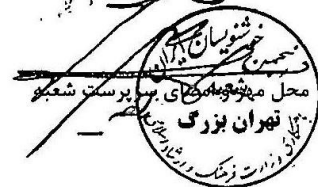 انجمن خوشنویسان ایران
محل مهر و امضای سرپرست شعبه
شعبه
تهران بزرگ
وزارت فرهنگ و ارشاد اسلامی